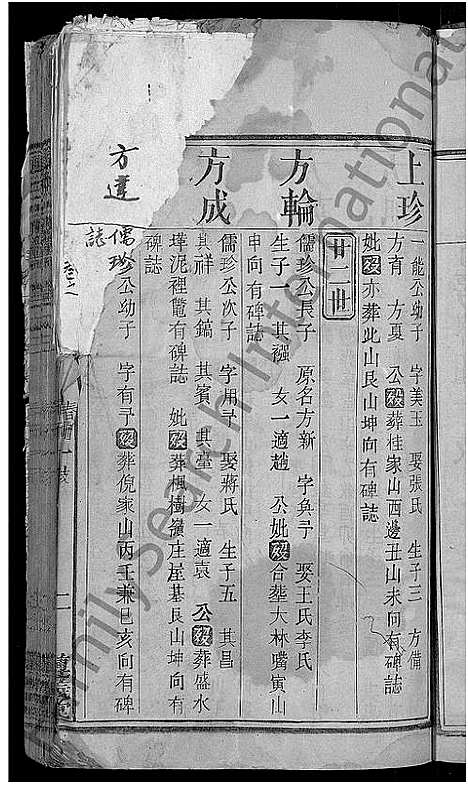 上珍
一能公幼子 字美玉 娶張氏 生子三 方備
方育 方夏 公歿葬桂家山西邊丑山未向有碑誌
妣歿亦葬此山艮山坤向有碑誌
廿二世
方輪
儒珍公長子 原名方新 字奐予 娶王氏李氏
生子一 其襁 女一適趙 公妣歿合塟大林嘴寅山
申向有碑誌
方成
儒珍公次子 字用予 娶蔣氏 生子五 其昌
其祥 其鏋 其賓 其臺 女一適袁 公歿葬盛水
墿泥裡凴有碑誌 妣歿葬楓樹嶺庄屋基艮山坤向有
碑誌
方達
儒珍公幼子 字有予歿葬倪家山丙壬兼巳亥向有碑
誌
二
familysearch International